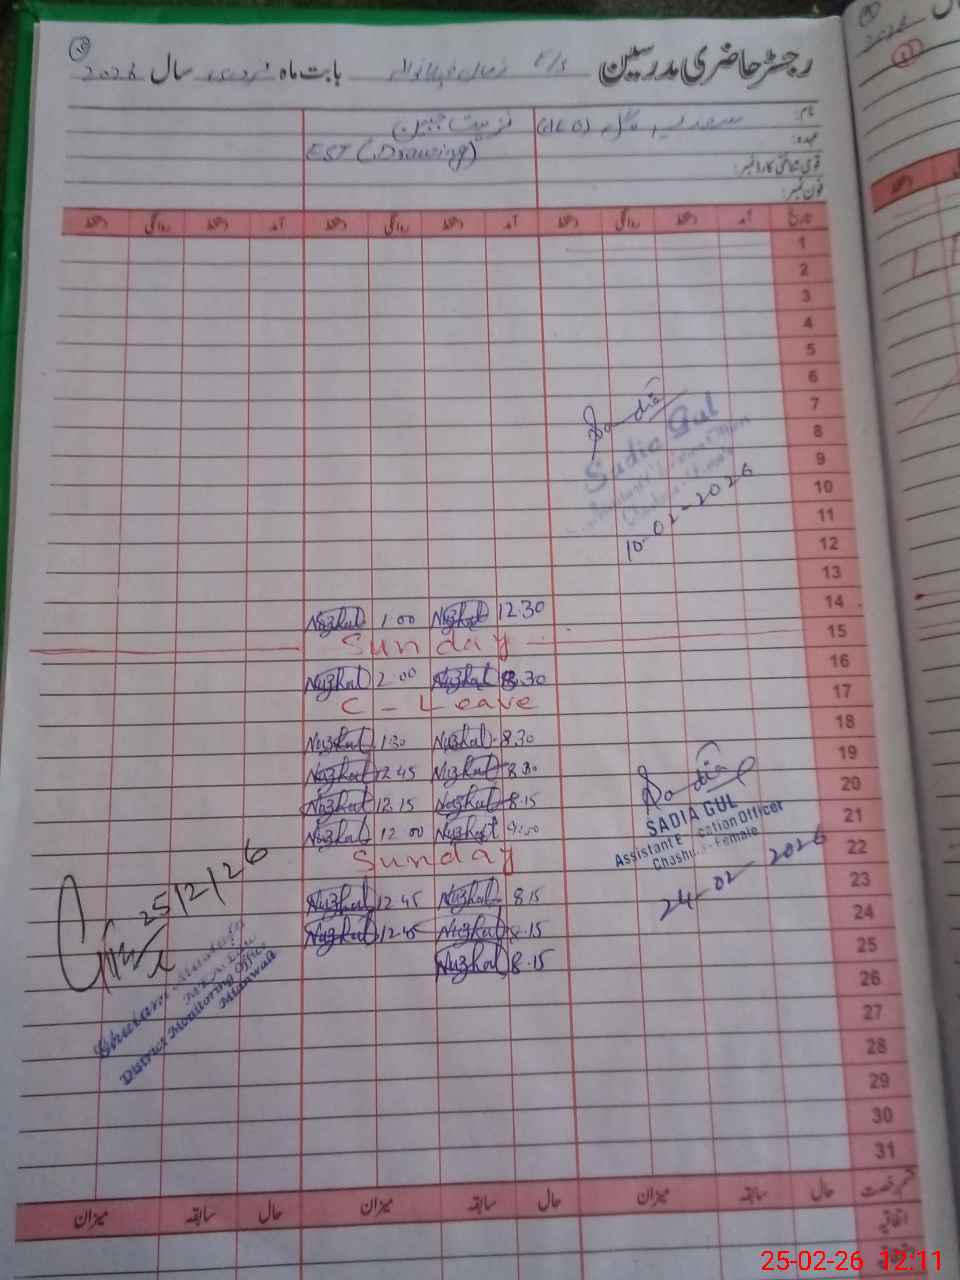 رجسٹر حاضری مدرسین E/S بابت ماہ فروری سال 2026
نام: سعدیہ گل (AEO) نزہت جبین
عہدہ: EST (Drawing)
قومی شناختی کارڈ نمبر:
فون نمبر:
تاریخ آمد دستخط روانگی دستخط آمد دستخط روانگی دستخط آمد دستخط روانگی دستخط
1
2
3
4
5
6
7
8
9
10
11
12
13
14
15
16
17
18
19
20
21
22
23
24
25
26
27
28
29
30
31
Sadia
Sadia Gul
10-02-2026
Nuzhat 1:00 Nuzhat 12.30
Sunday
Nuzhat 2:00 Nuzhat 8.30
C - Leave
Nuzhat 1:30 Nuzhat 8.30
Nuzhat 12.45 Nuzhat 8.30
Nuzhat 12.15 Nuzhat 8.15
Nuzhat 12 00 Nuzhat 9:00
Sunday
Nuzhat 12 45 Nuzhat 8.15
Nuzhat 12:45 Nuzhat 8.15
Nuzhat 8.15
Sadia
SADIA GUL
Assistant Education Officer
Female
24-02-2026
25/2/26
District Monitoring Office
Mianwali
قسم رخصت حال سابقہ میزان حال سابقہ میزان حال سابقہ میزان
اتفاقیہ
25-02-26 12:11